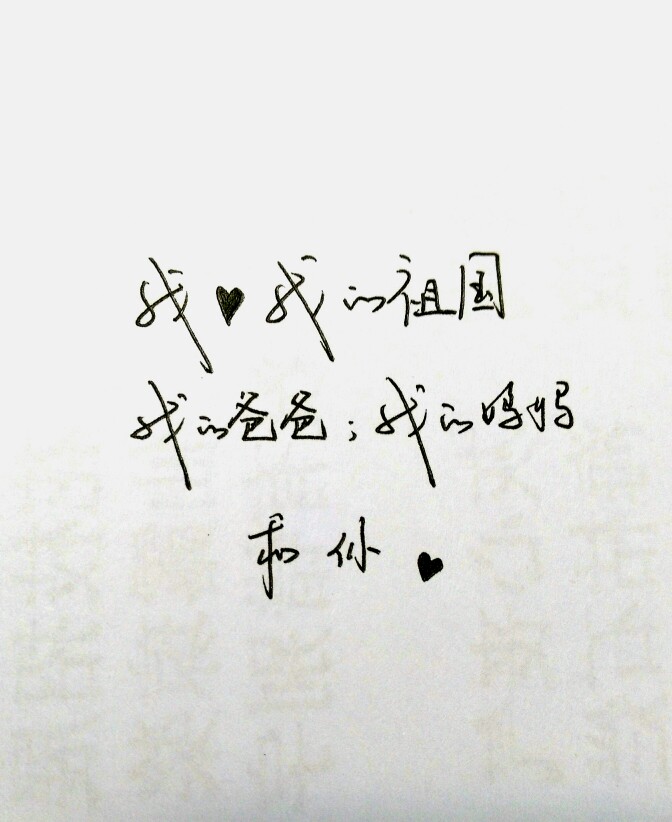 我♥我的祖国
我的爸爸；我的妈妈
和你♥